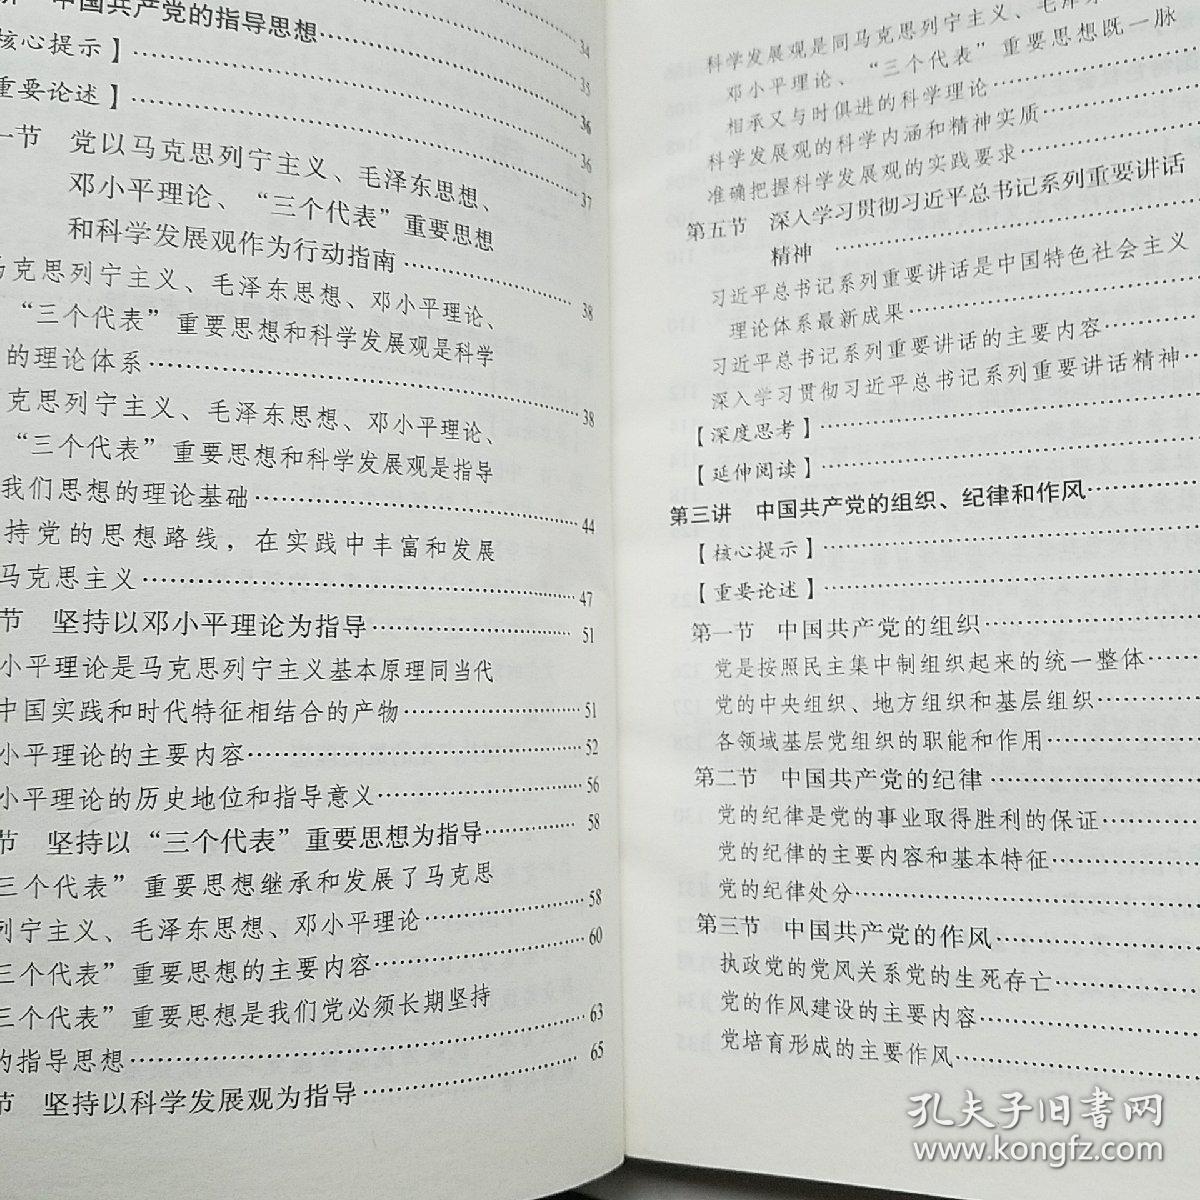 讲 中国共产党的指导思想…… 34
核心提示】…… 35
重要论述】…… 36
一节 党以马克思列宁主义、毛泽东思想、 36
邓小平理论、“三个代表”重要思想 37
和科学发展观作为行动指南……
马克思列宁主义、毛泽东思想、邓小平理论、 38
“三个代表”重要思想和科学发展观是科学
的理论体系…… 38
克思列宁主义、毛泽东思想、邓小平理论、
“三个代表”重要思想和科学发展观是指导
我们思想的理论基础…… 44
持党的思想路线，在实践中丰富和发展
马克思主义…… 47
节 坚持以邓小平理论为指导…… 51
小平理论是马克思列宁主义基本原理同当代
中国实践和时代特征相结合的产物…… 51
小平理论的主要内容…… 52
小平理论的历史地位和指导意义…… 56
节 坚持以“三个代表”重要思想为指导…… 58
三个代表”重要思想继承和发展了马克思
列宁主义、毛泽东思想、邓小平理论…… 58
三个代表”重要思想的主要内容…… 60
三个代表”重要思想是我们党必须长期坚持
的指导思想…… 63
节 坚持以科学发展观为指导…… 65
科学发展观是同马克思列宁主义、毛泽东
邓小平理论、“三个代表”重要思想既一脉
相承又与时俱进的科学理论……
科学发展观的科学内涵和精神实质……
准确把握科学发展观的实践要求……
第五节 深入学习贯彻习近平总书记系列重要讲话
精神……
习近平总书记系列重要讲话是中国特色社会主义
理论体系最新成果……
习近平总书记系列重要讲话的主要内容……
深入学习贯彻习近平总书记系列重要讲话精神……
【深度思考】……
【延伸阅读】……
第三讲 中国共产党的组织、纪律和作风……
【核心提示】……
【重要论述】……
第一节 中国共产党的组织……
党是按照民主集中制组织起来的统一整体……
党的中央组织、地方组织和基层组织……
各领域基层党组织的职能和作用……
第二节 中国共产党的纪律……
党的纪律是党的事业取得胜利的保证……
党的纪律的主要内容和基本特征……
党的纪律处分……
第三节 中国共产党的作风……
执政党的党风关系党的生死存亡……
党的作风建设的主要内容……
党培育形成的主要作风……
孔夫子旧书网
www.kongfz.com